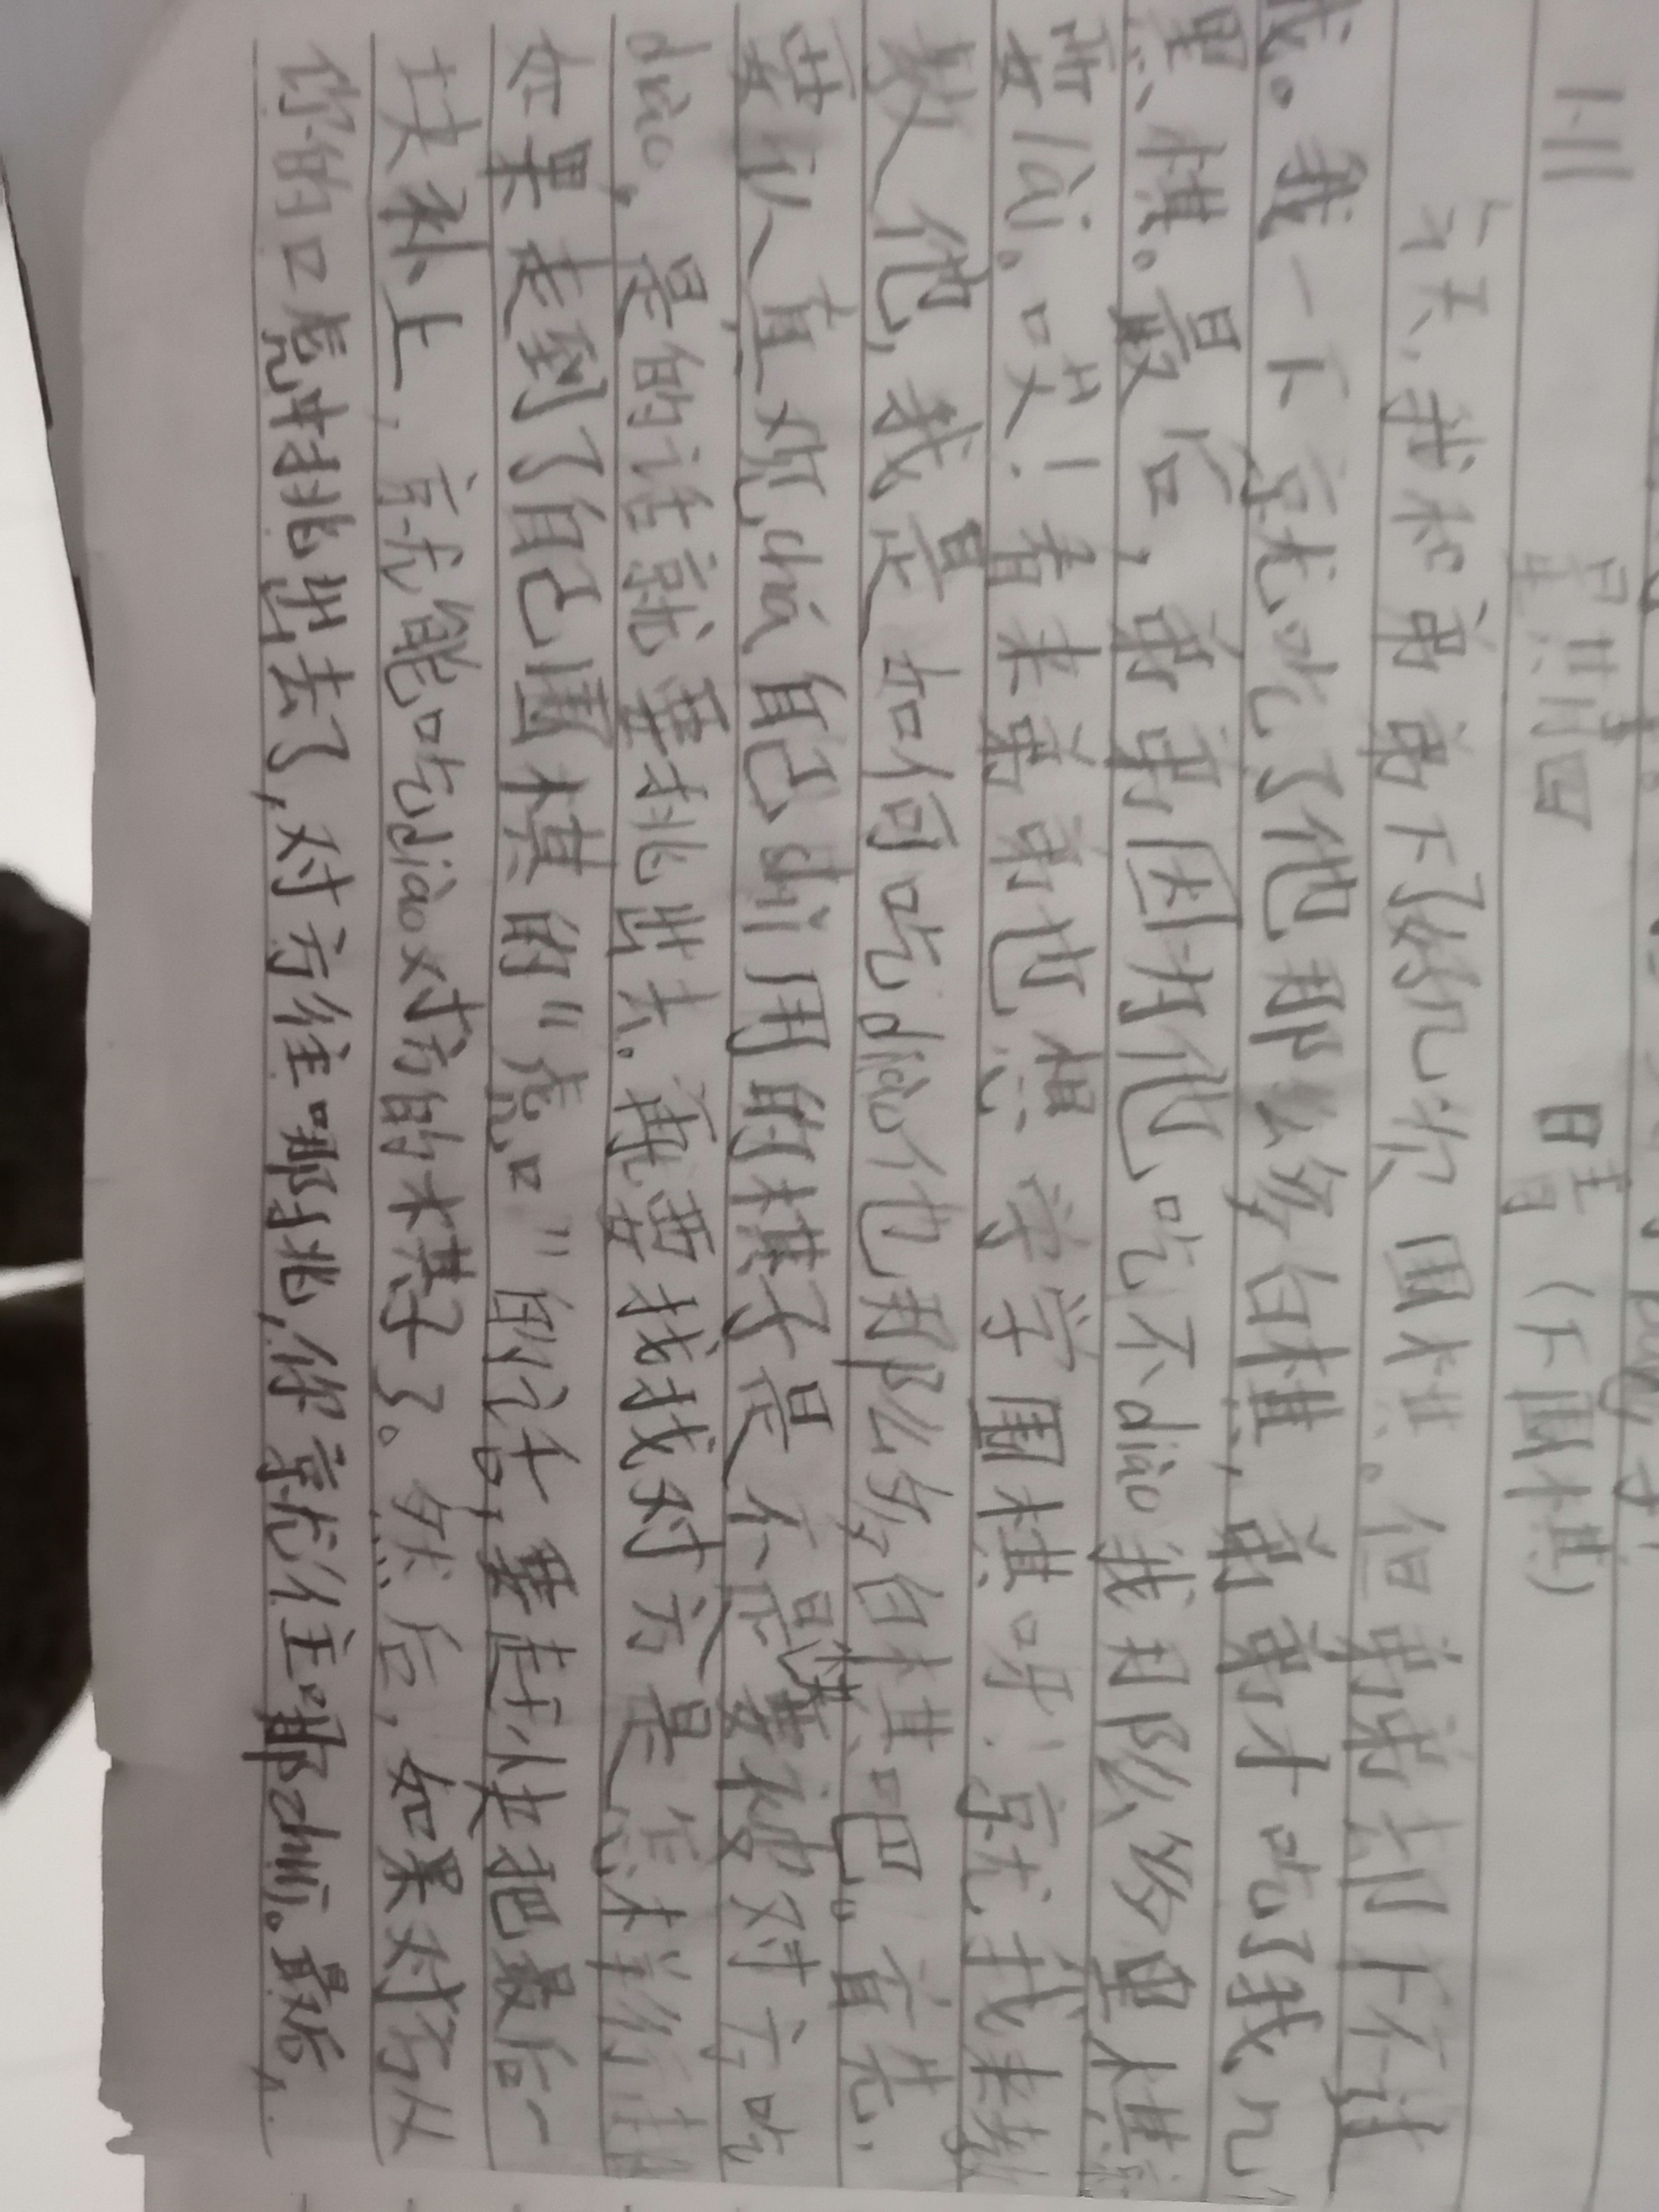 1.11 星期四 晴（下围棋）
今天，我和弟弟下了好几次围棋。但弟弟都下不过
我。我一下京尤吃了他那么多白棋，弟弟才吃了我几个
黑棋。最后，弟弟因为他吃不diào我那么多黑棋
要lài。哎！看来弟弟也想学学围棋呀！就我来教
教他，我是如何吃diào他那么多白棋吧。首先，
要认真观chá自己dhì用的棋子是不是快要被对方吃
diào，是的话就要挑出去。再要找找对方是怎样行走
如果走到了自己围棋的"虎口"的话，要赶快把最后一
块补上，就能吃diào对方的棋子了。然后，如果对方从
你的口虎中挑出去了，对方往哪挑，你就往哪zhuī。最后，